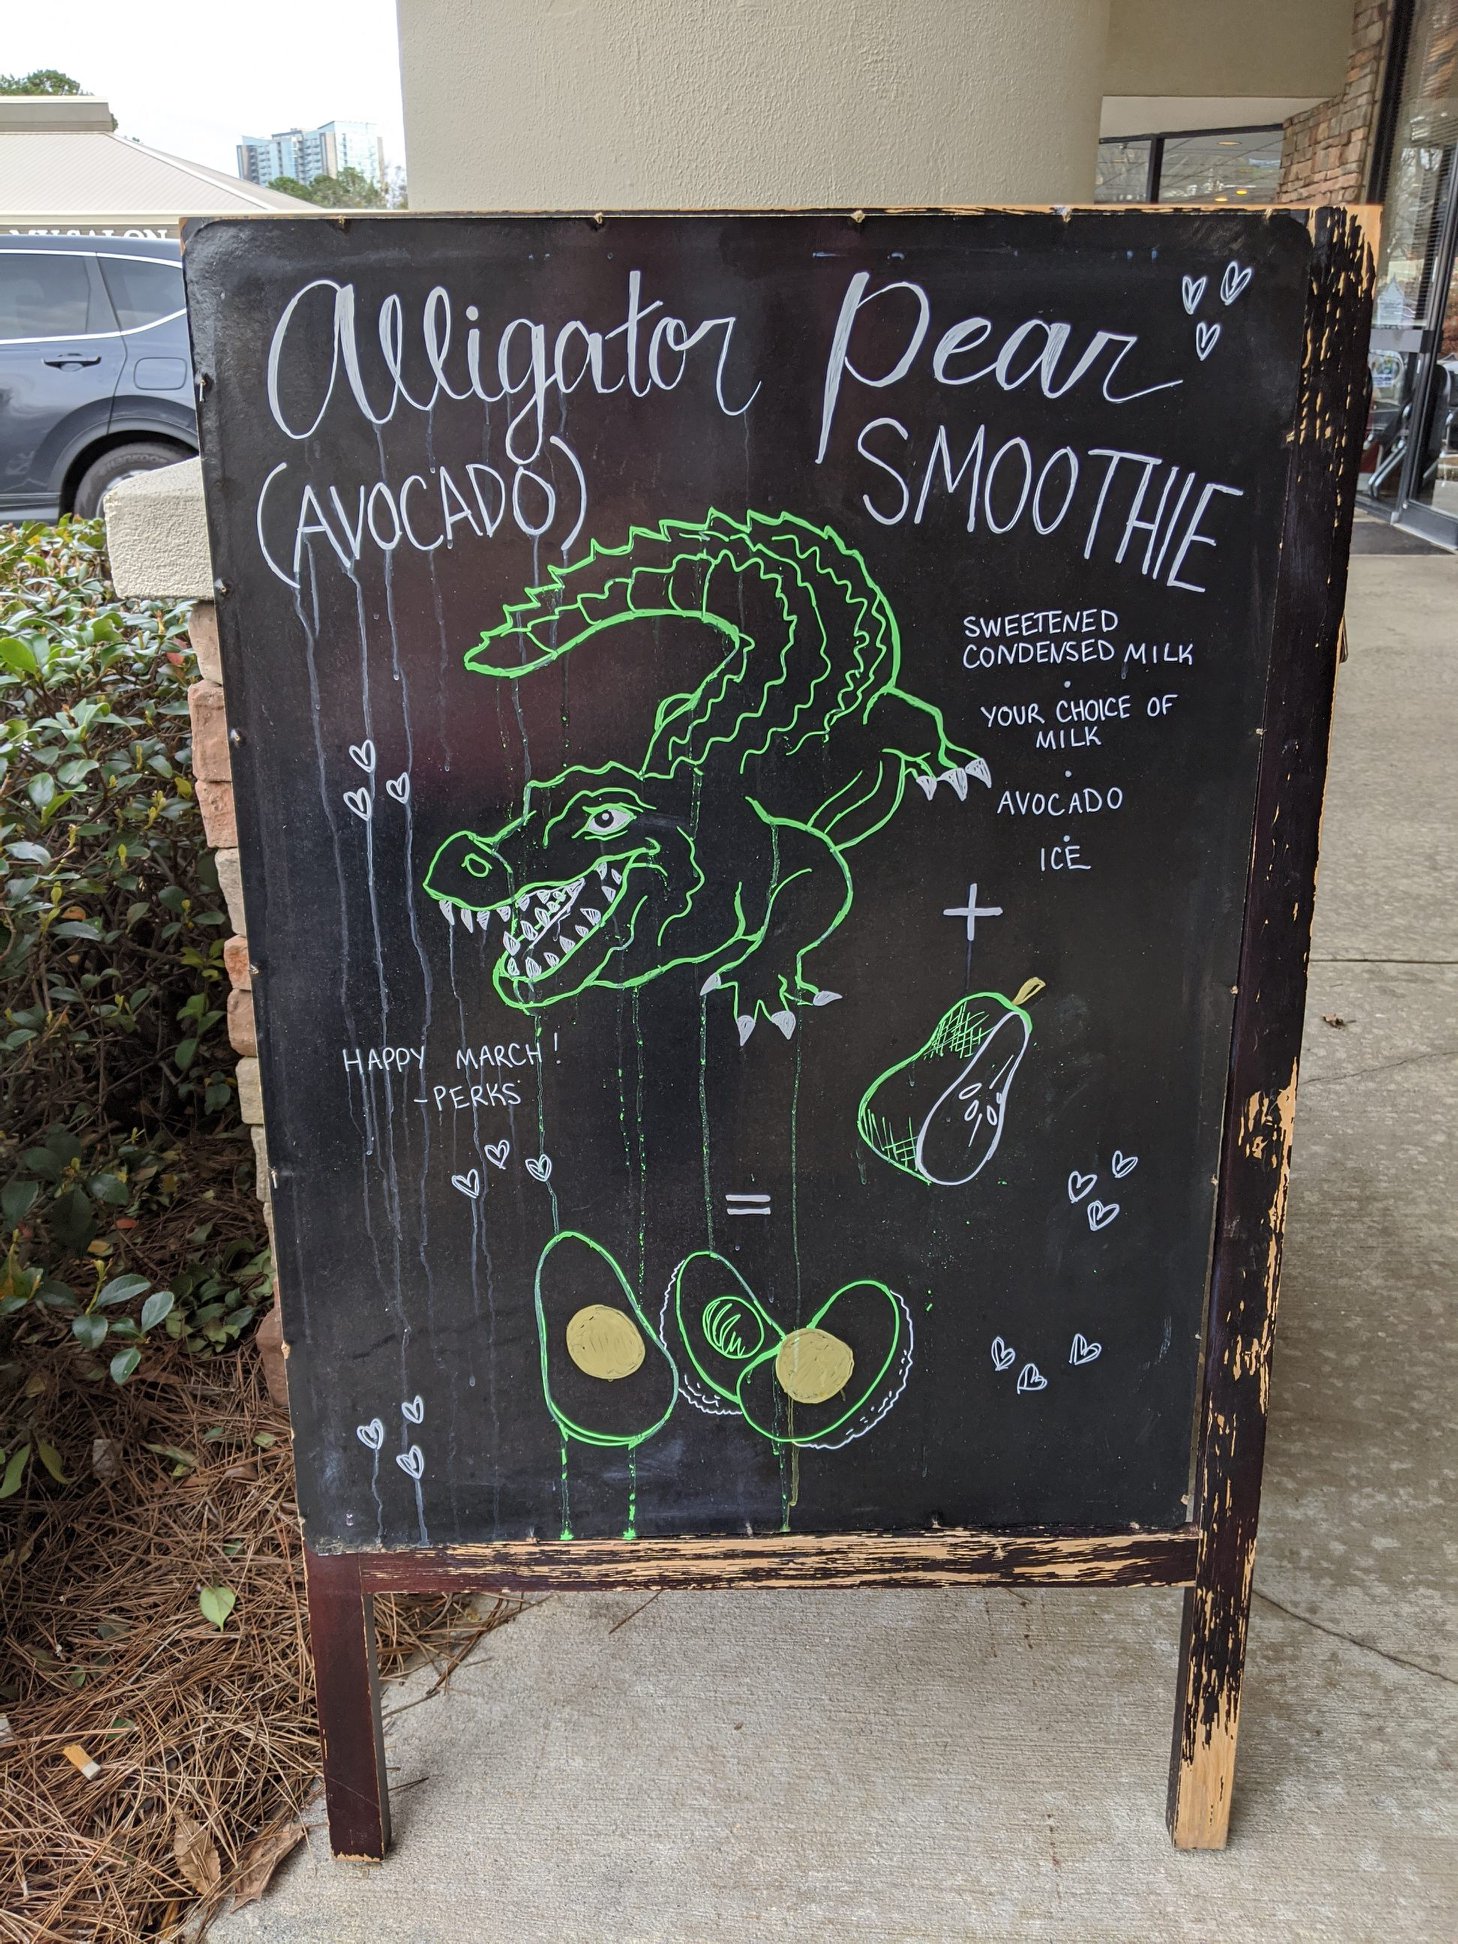 Alligator Pear
(AVOCADO) SMOOTHIE
SWEETENED
CONDENSED MILK
YOUR CHOICE OF
MILK
AVOCADO
ICE
+
HAPPY MARCH!
-PERKS
=